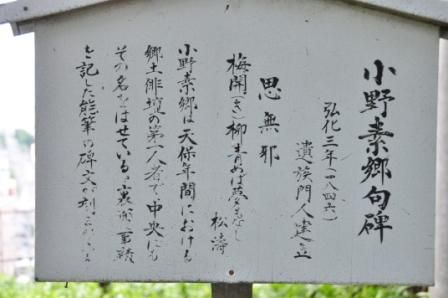 小野素郷句碑
弘化三年(一八四六)
遺族門人達立
思無邪
梅開(き)柳青めば夢もなし
松濤
小野素郷は天保年間における
郷土俳壇の第一人者で中央にも
その名をはせている。裏面に事績
を記した能筆の碑文が刻されている